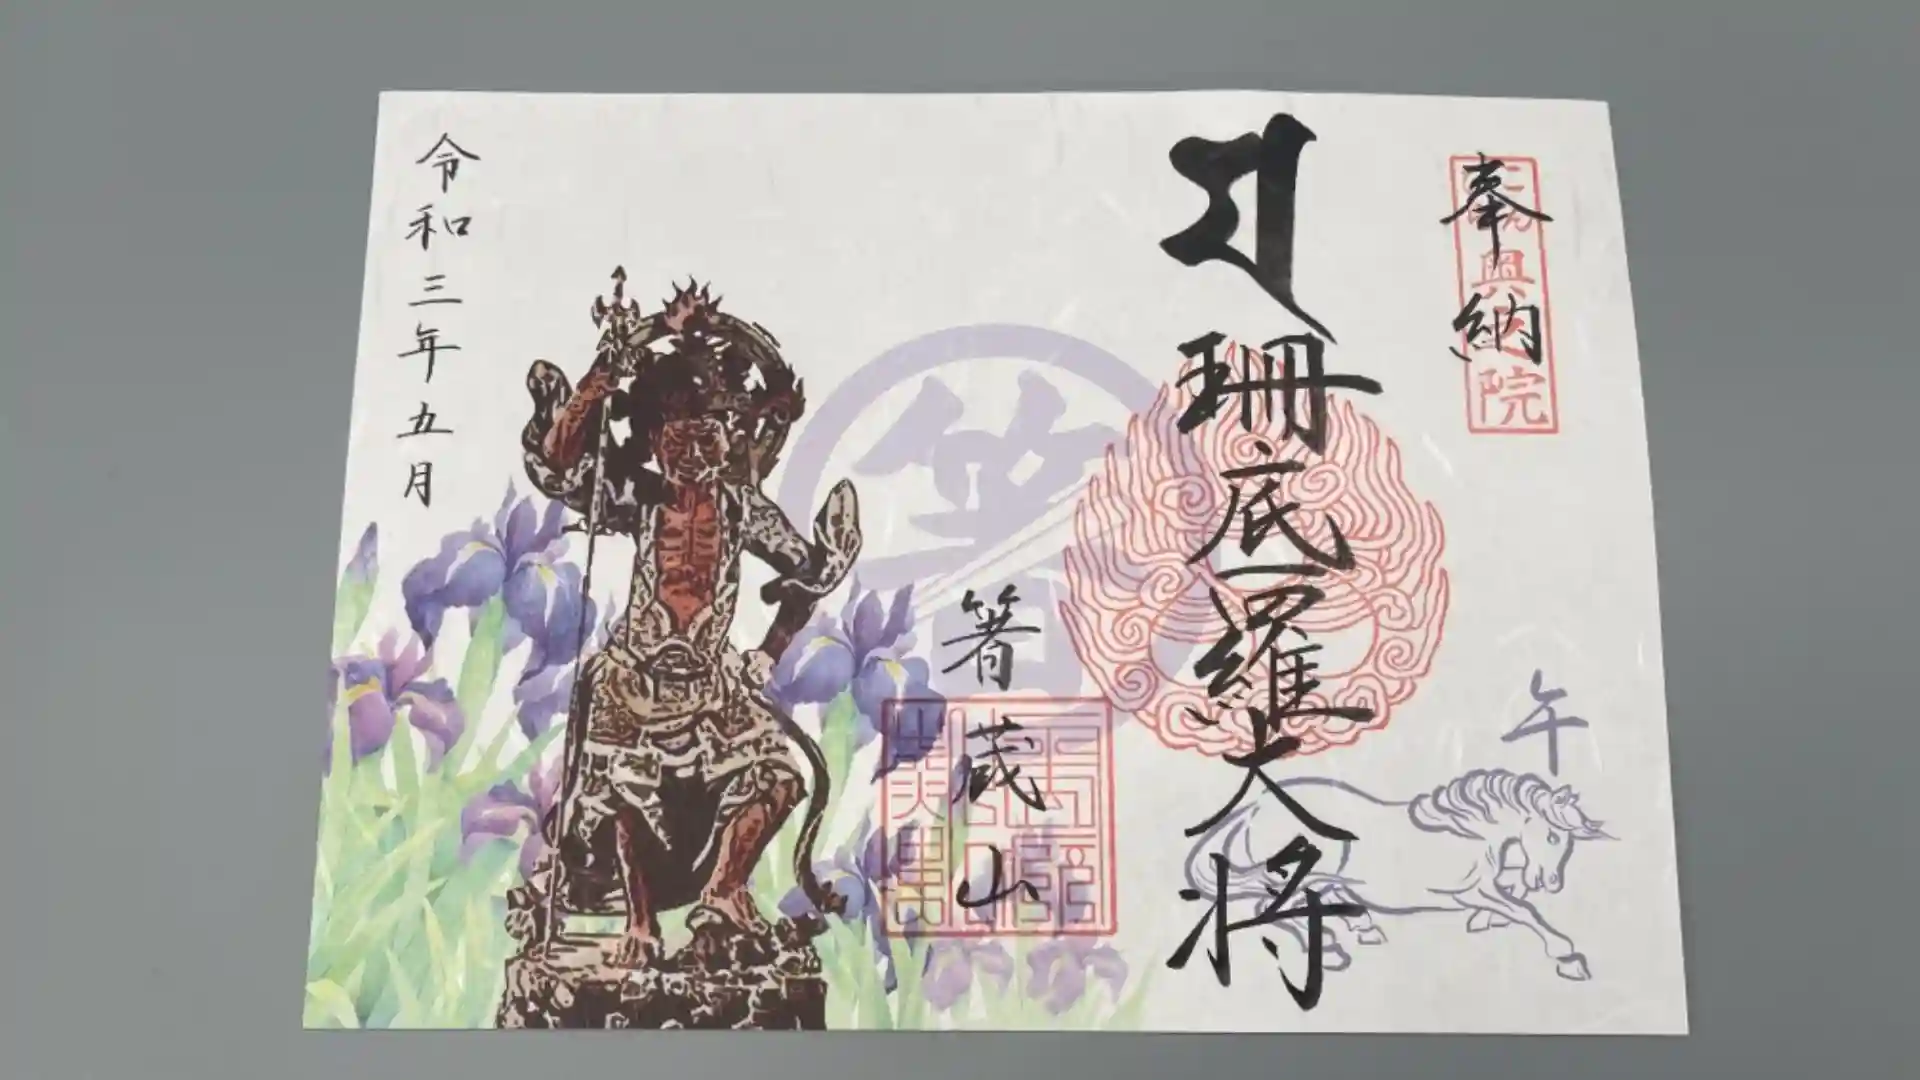 奉納
珊底羅大将
午
箸
箸蔵山
令和三年五月